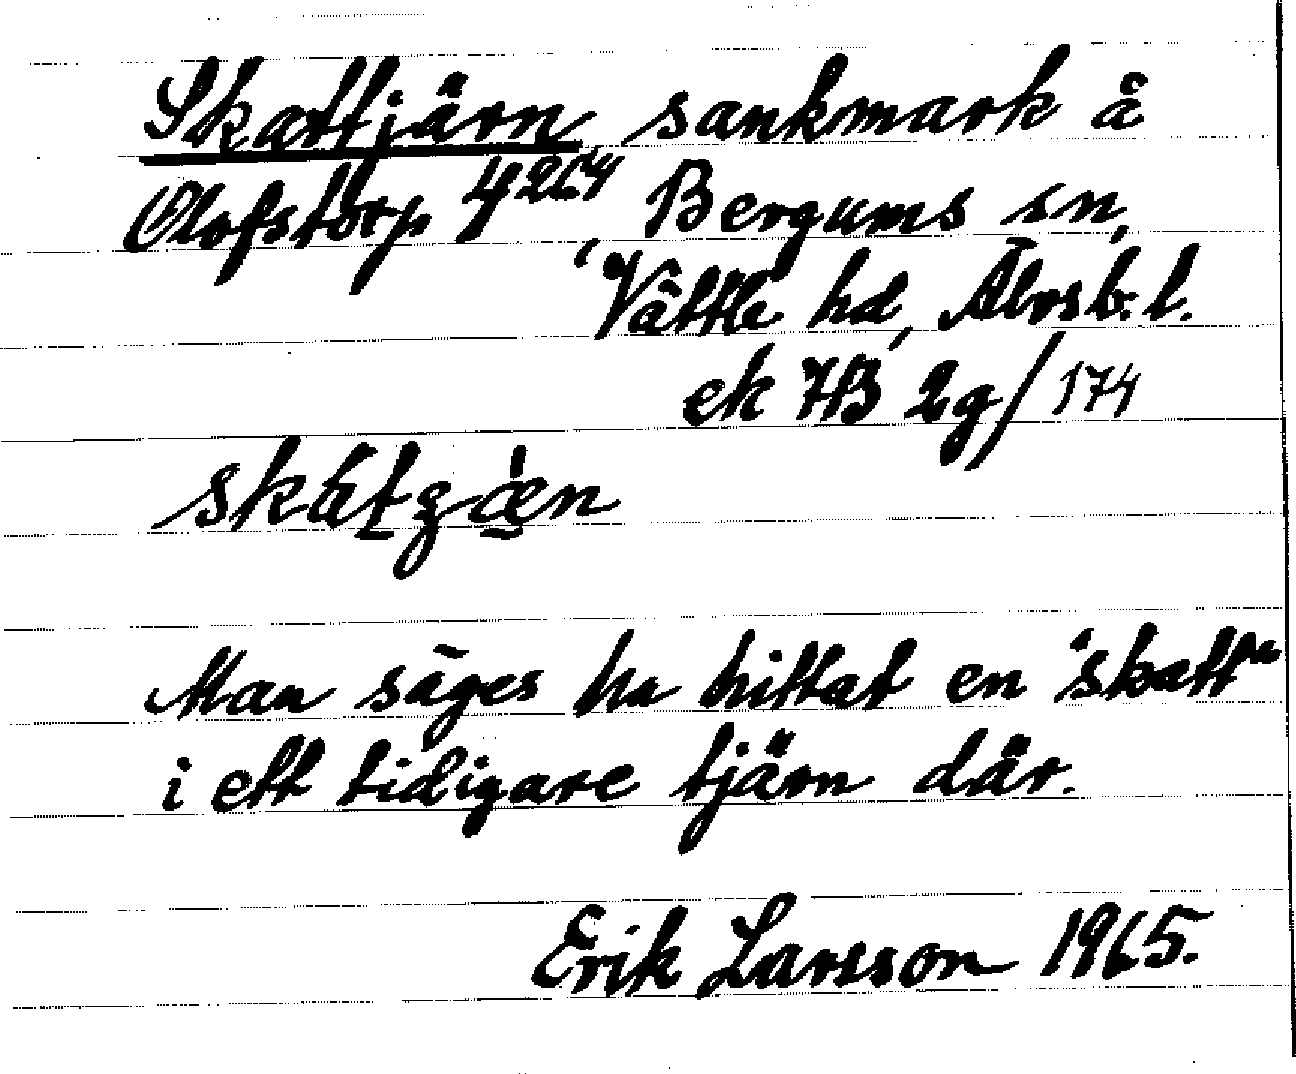 Skattjärn, sankmark å
Olofstorp 4²⁶⁴, Bergums sn,
Vättle hd, Älvsb. l.
ek 7B 2g/174
Man säges ha hittat en "skatt"
i ett tidigare tjärn där.
Erik Larsson 1965.